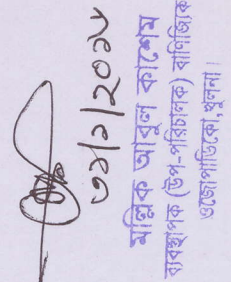 ৩১/১/২০১৮
মল্লিক আবুল কাশেম
ব্যবস্থাপক (উপ-পরিচালক) বাণিজ্যিক
ওজোপাডিকো,খুলনা।